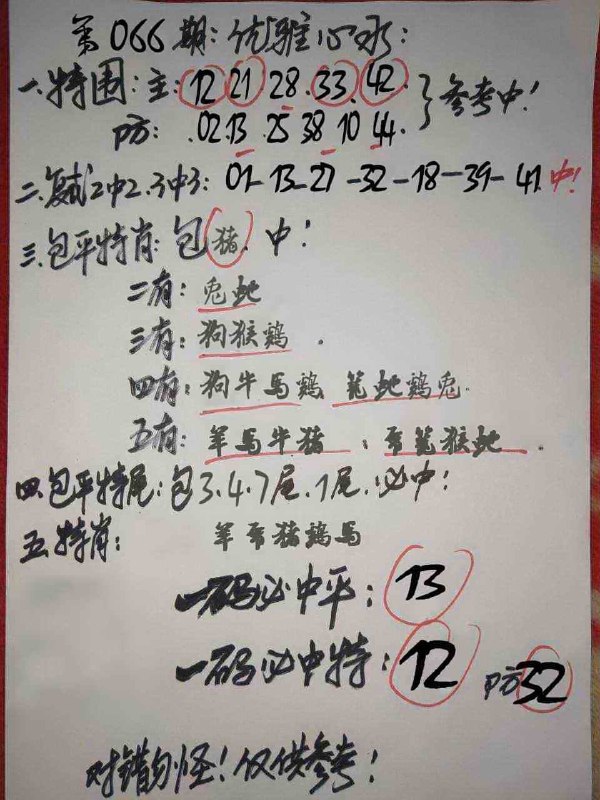 第066期:优雅心水:
一.特围:主:12 21 28.33.42.
防:.02.13.25 38 10 44. }参考中!
二.复试2中2.3中3:01-13-27-32-18-39-41中!
三.包平特肖:包猪.中!
二有:兔蛇
三有:狗猴鸡.
四有:狗牛马鸡 龙蛇鸡兔.
五有:羊马牛猪:虎龙猴蛇.
四.包平特尾:包3.4.7尾.1尾.必中!
五.特肖:羊虎猪鸡马
一码必中平:13
一码必中特:12 防32
对错勿怪!仅供参考!